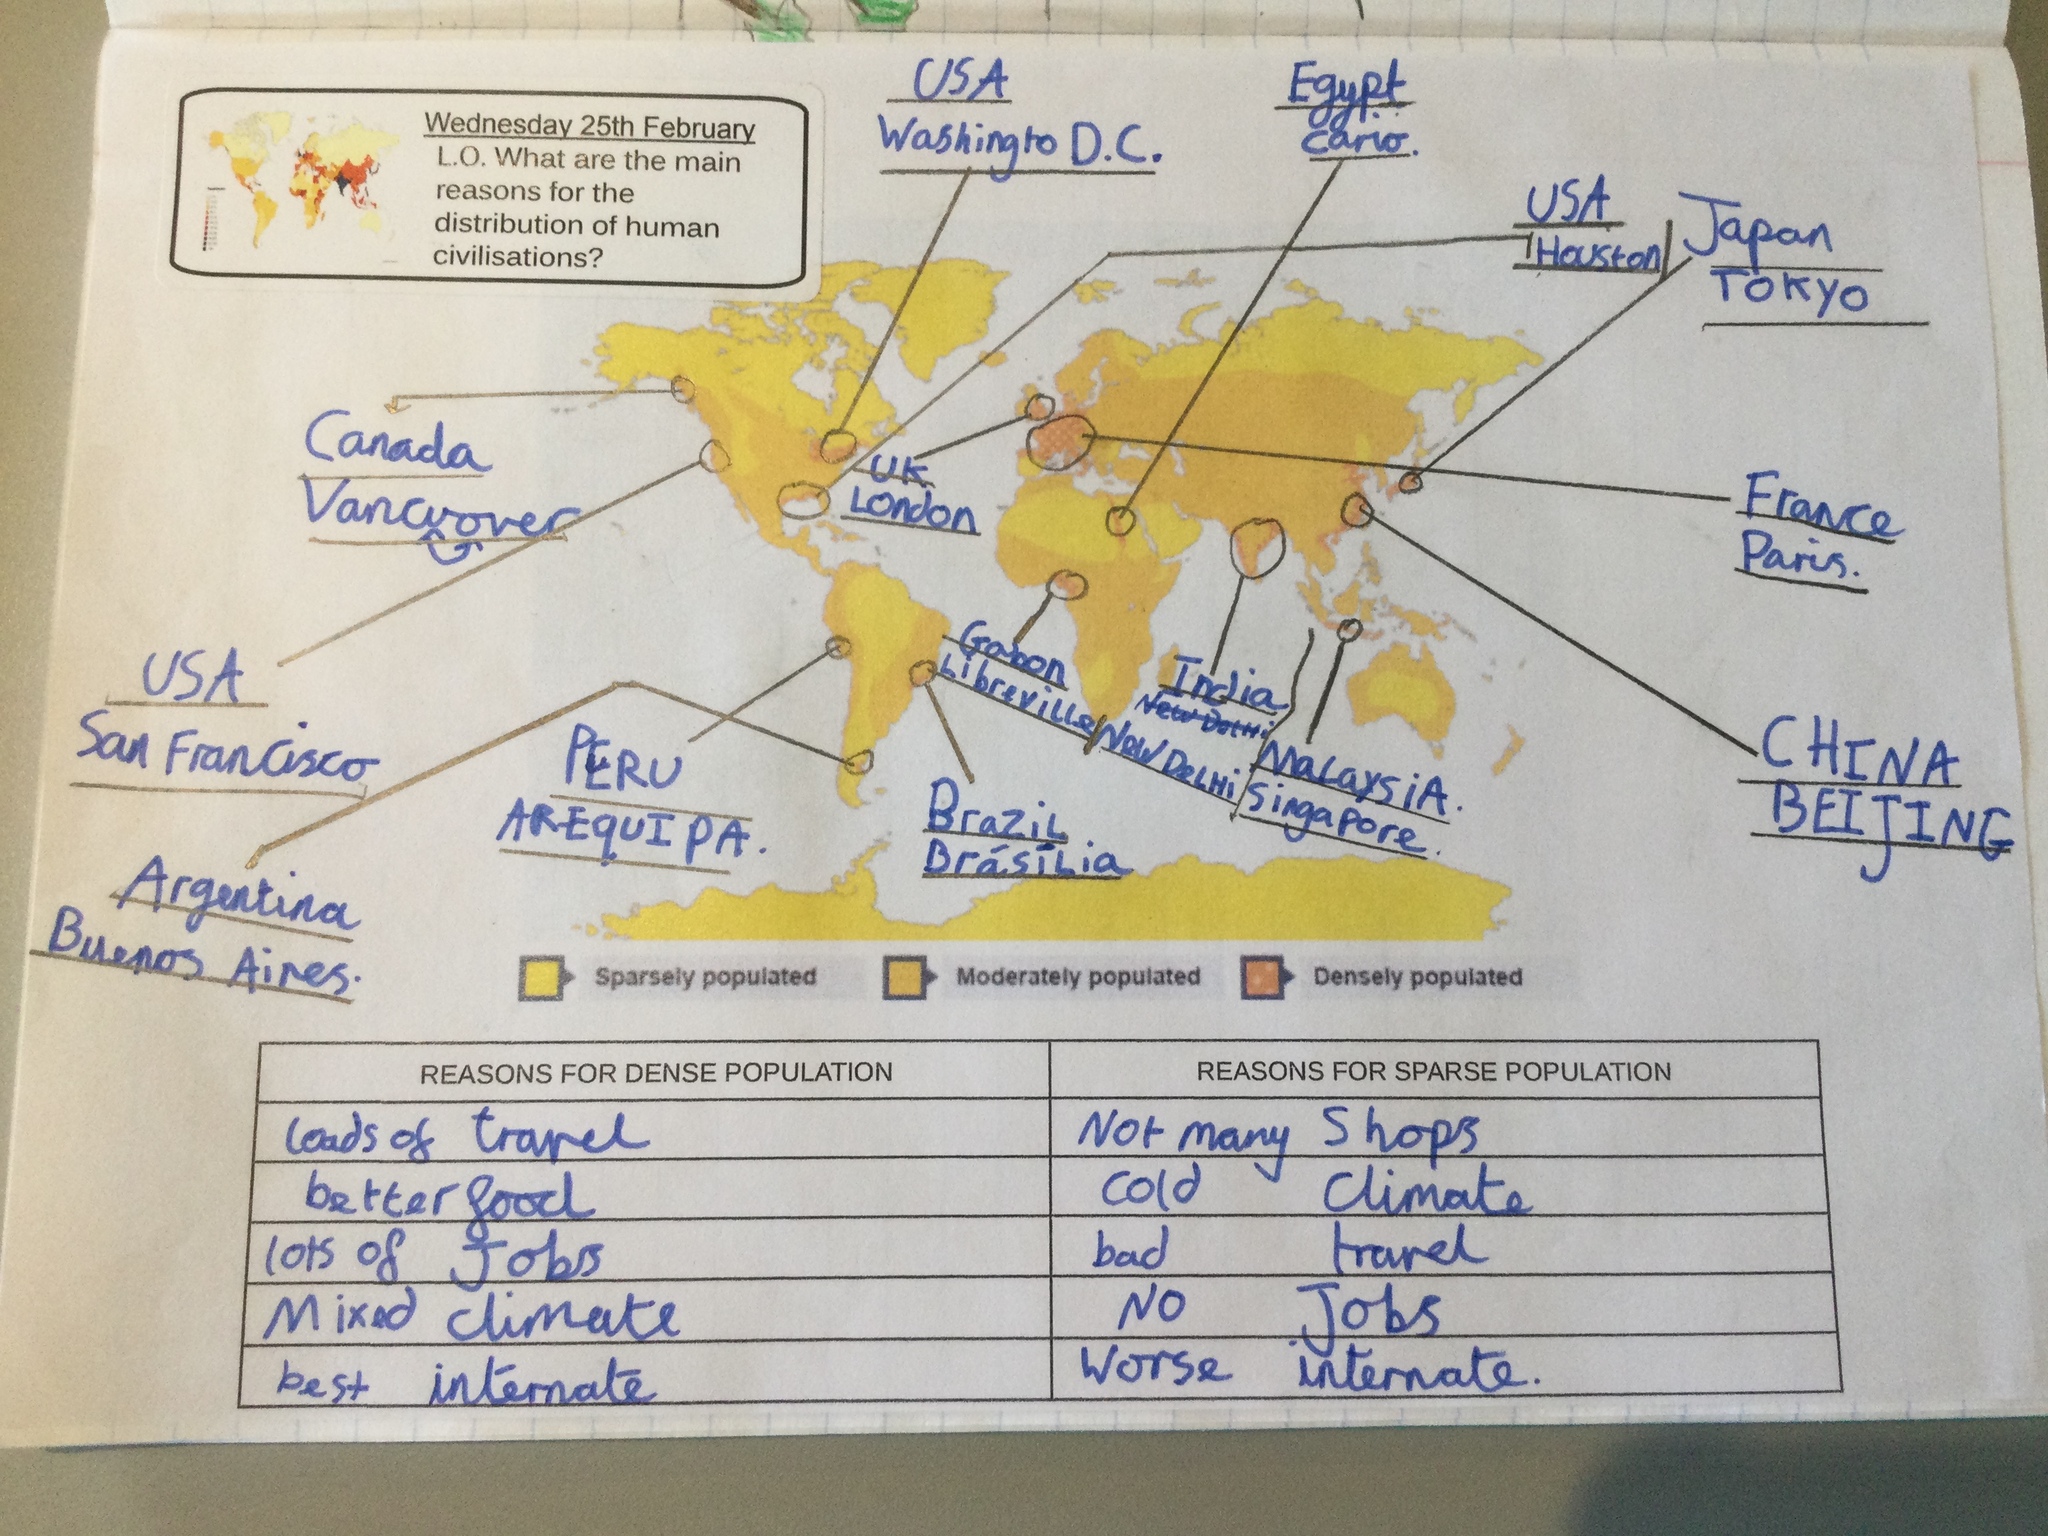 Wednesday 25th February
L.O. What are the main
reasons for the
distribution of human
civilisations?
USA
Washingto D.C.
Egypt
Cario.
USA
Houston
Japan
TOKYO
Canada
Vancuover
UK
London
France
Paris.
USA
San Francisco
PERU
AREQUIPA.
Gabon
Libreville
India
New Delhi
NEW DELHI
MALAYSIA.
Singapore.
CHINA
BEIJING
Argentina
Buenos Aires.
Brazil
Brásília
Sparsely populated
Moderately populated
Densely populated
REASONS FOR DENSE POPULATION
REASONS FOR SPARSE POPULATION
loads of travel
Not many Shops
better food
cold climate
lots of Jobs
bad travel
Mixed climate
NO Jobs
best internate
Worse internate.